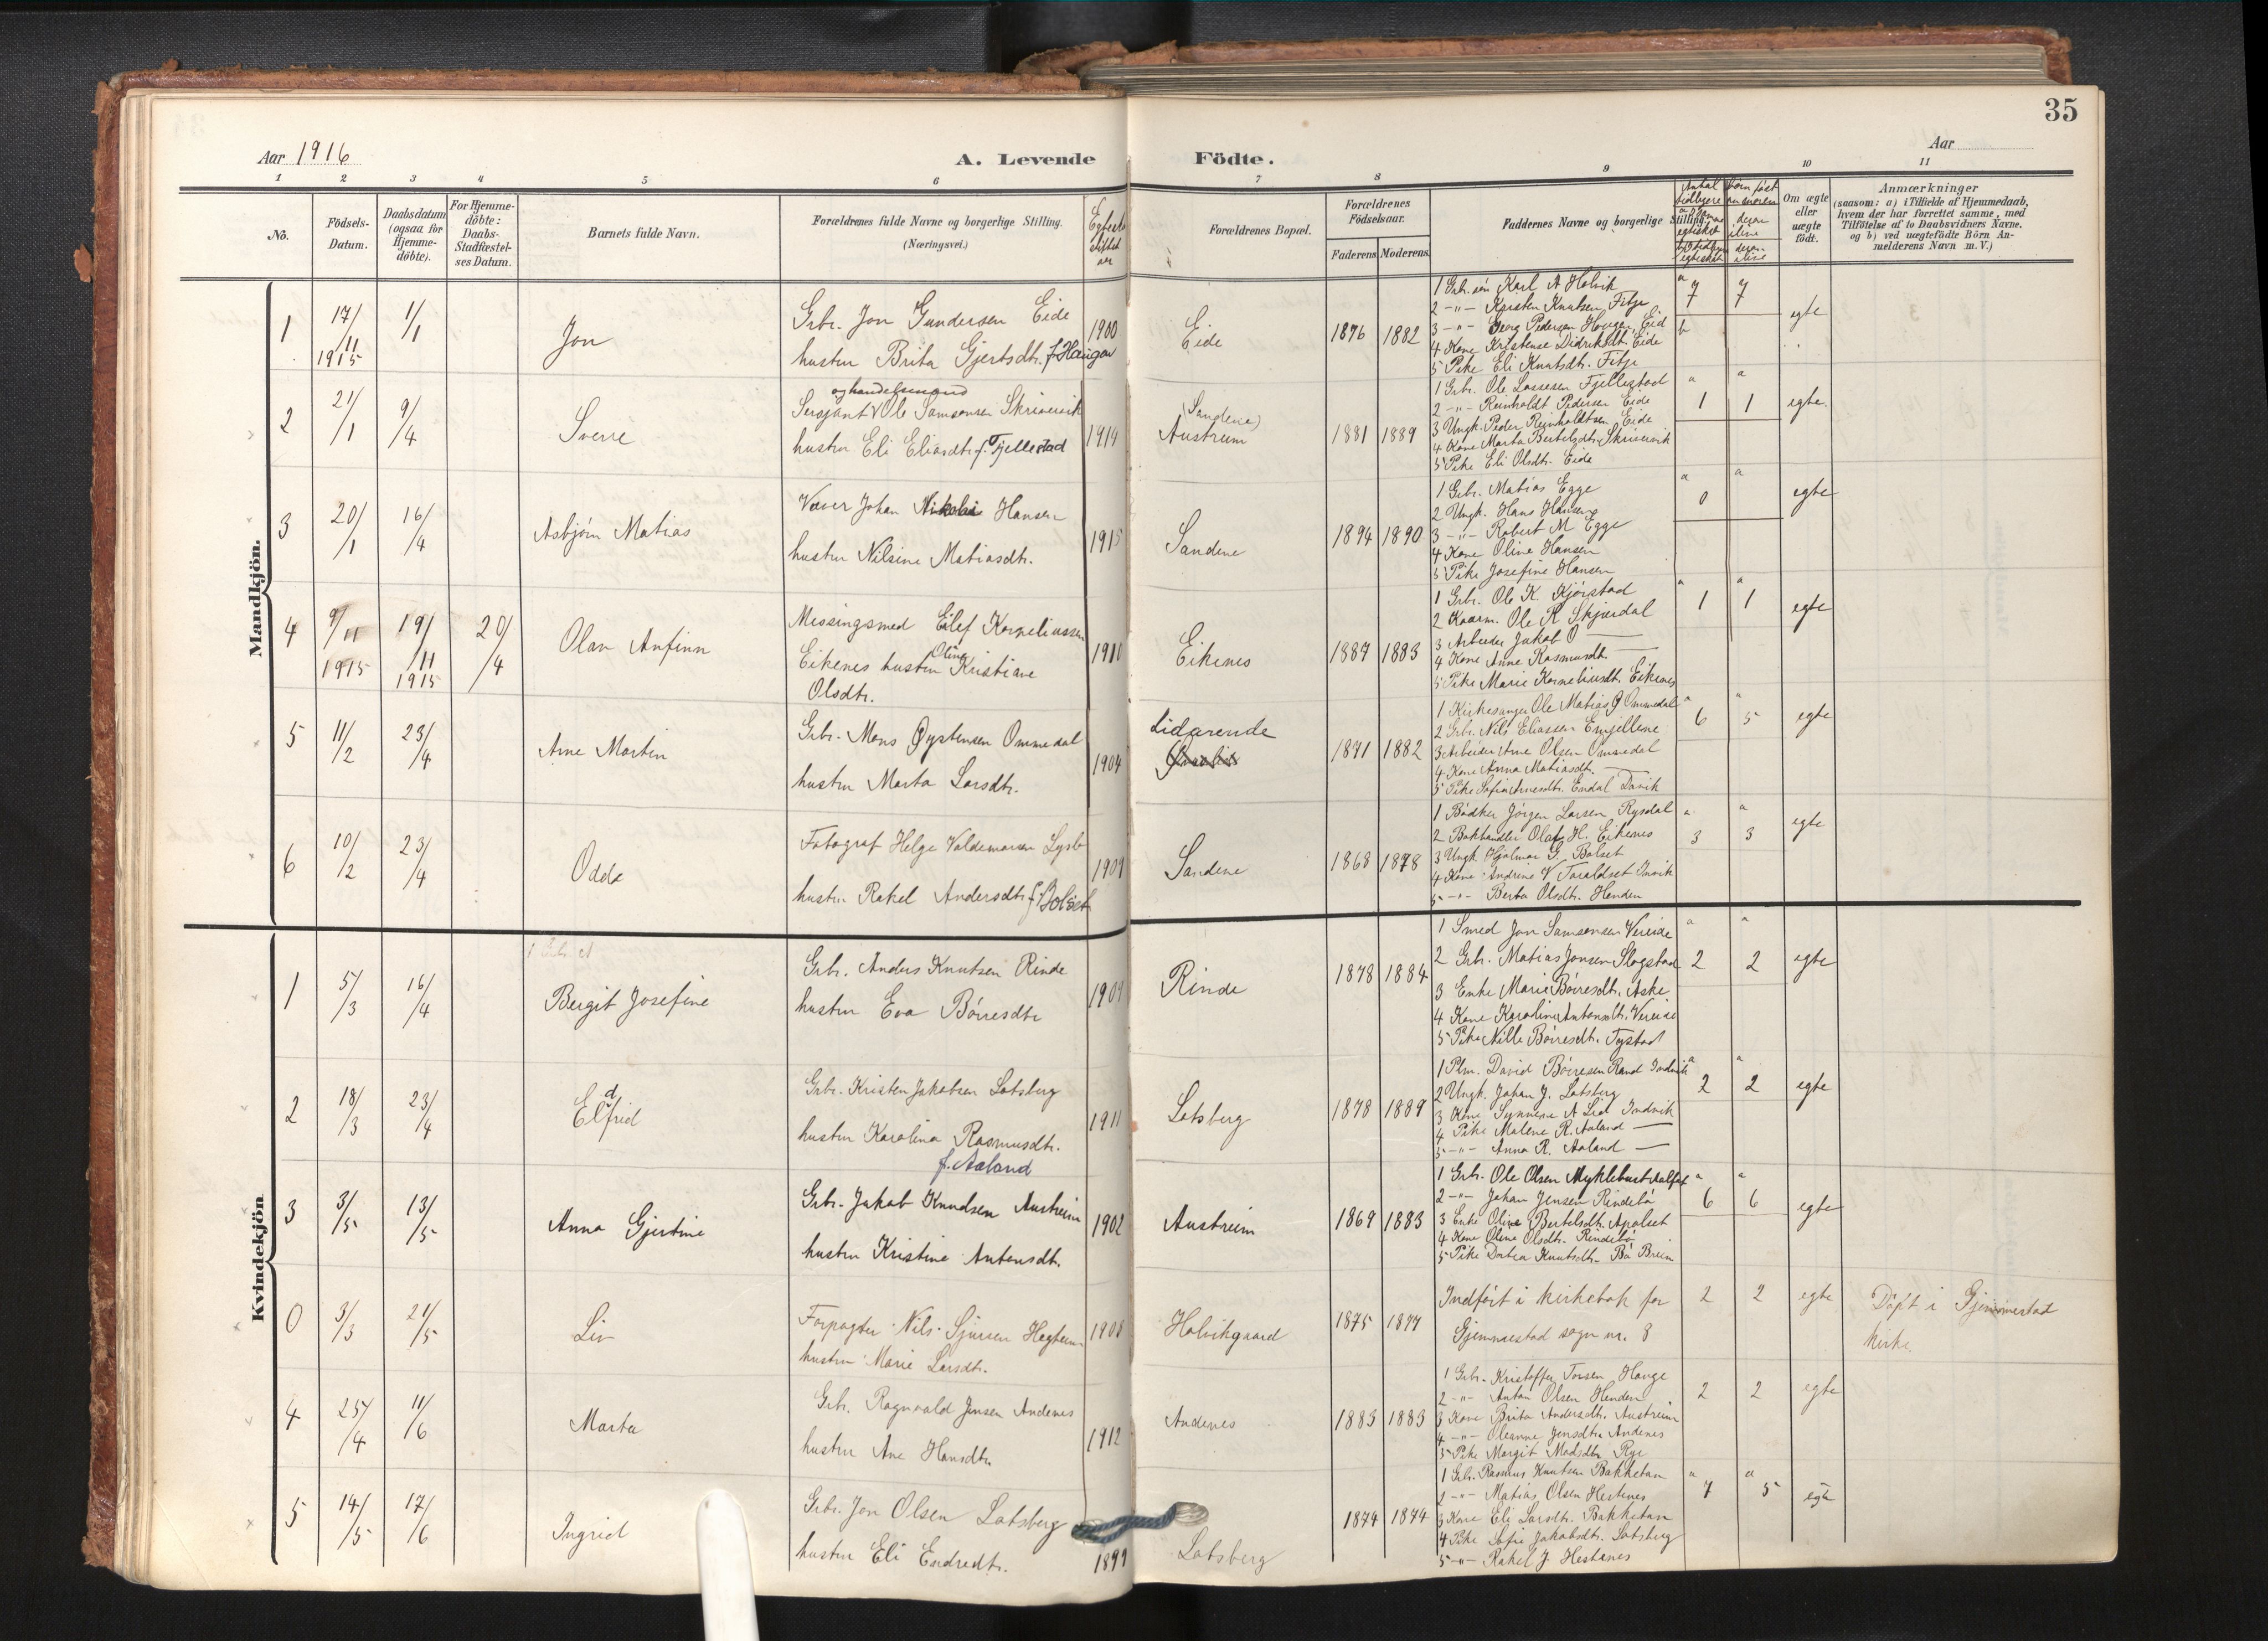 35
Aar 1916
A. Levende Födte.
Aar
1 2 3 4 5 6 7 8 9 10 11
No.
Födsels-Datum.
Daabsdatum (ogsaa for Hjemme-döbte).
For Hjemme-döbte: Daabs-Stadfæstel-ses Datum.
Barnets fulde Navn.
Forældrenes fulde Navne og borgerlige Stilling. (Næringsvei.)
Forældrenes Bopæl.
Forældrenes Födselsaar.
Faderens Moderens
Faddernes Navne og borgerlige Stilling.
Om ægte eller uægte födt.
Anmærkninger
(saasom: a) i Tilfælde af Hjemmedaab, hvem der har forrettet samme, med Tilföielse af to Daabsvidners Navne. og b) ved uægtefödte Börn An-melderens Navn m. V.)
Mandkjön.
1 17/11 1915 1/1 Jon
Grbr. Jon Gundersen Eide
hustru Brita Gjertsdtr. f. Haugen
1900 Eide 1876 1882
1 Grbr. søn Karl A Holvik
2 -"- Karsten Knutsen Fitje
3 -"- Georg Pedersen Hougen, Eid
4 Kone Kristense Didriksdt. Eide
5 Pike Eli Knutsdtr. Fitje
a 7 7 b egte
2 21/1 9/4 Sverre
og handelsmand
Sersjant Ole Samsonsen Skrivervik
hustru Eli Eliasdtr f. Fjellestad
1914 (Sandene) Austreim 1881 1889
1 Grbr. Ole Lassesen Fjellestad
2 -"- Reinholdt Pedersen Eide
3 Ungk. Peder Reinholdtsen Eide
4 Kone Marta Bertelsdtr. Skrivervik
5 Pike Eli Olsdtr. Eide
a a 1 1 egte.
3 20/1 16/4 Asbjørn Matias
Væver Johan Nikolai Hansen
hustru Nilsine Matiasdtr.
1915 Sandene 1894 1890
1 Grbr. Matias Egge
2 Ungk. Hans Hansen
3 -"- Robert M Egge
4 Kone Oline Hansen
5 Pike Josefine Hansen
a a 0 egte
4 9/11 1915 19/11 1915 20/4 Olav Anfinn
Messingsmed Eilef Korneliussen
Eikenes hustru Oline Kristiane
Olsdtr.
1910 Eikenes 1887 1883
1 Grbr. Ole K Kjørstad
2 Kaarm. Ole R Skjærdal
3 Arbeider Jakob O —
4 Kone Anne Rasmusdt. —
5 Pike Marie Korneliusdt. Eikenes
a a 1 1 egte
5 11/2 23/4 Arne Martin
Grbr. Mons Øystensen Ommedal
hustru Marta Larsdtr.
1904 Lidarende 1871 1882
1 Kirkesanger Ole Matias O Ommedal
2 Grbr. Nils Eliassen Emjellene
3 Arbeider Arne Olsen Ommedal
4 Kone Anna Matiasdtr. —
5 Pike Sofie Arnesdtr. Endal Davik
a a 6 5 egte
6 10/2 23/4 Odd
Fotograf Helge Valdemarsen Lysbø
hustru Rakel Andersdtr f. Bolset
1909 Sandene 1868 1878
1 Bødker Jørgen Larsen Rysdal
2 Bokhandler Olaf H. Eikenes
3 Ungk. Hjalmar G. Bolset
4 Kone Andrine V Taraldset Invik
5 -"- Berta Olsdtr. Henden
a a 3 3 egte
Kvindekjön
1 5/3 16/4 Bergit Josefine
Grbr. Anders Knutsen Rinde
hustru Eva Børresdtr
1909 Rinde 1878 1884
1 Smed Jon Samsonsen Vereide
2 Grbr. Matias Jonsen Slagstad
3 Enke Marie Børresdt. Aske
4 Kone Karoline Antonsdtr. Vereide
5 Pike Nille Børresdt. Tystad
a a 2 2 egte
2 18/3 23/4 Eldfrid
Grbr. Kristen Jakobsen Lotsberg
hustru Karolina Rasmusdtr.
f. Aaland
1911 Lotsberg 1878 1889
1 Plm. David Børresen Rand Indvik
2 Ungk. Johan J. Lotsberg
3 Kone Synneve A Lid Indvik
4 Pike Malene R. Aaland —
5 -"- Anna R. Aaland —
a a 2 2 egte
3 3/5 13/5 Anna Gjertine
Grbr. Jakob Knudsen Austreim
hustru Kristine Antonsdt.
1902 Austreim 1869 1883
1 Grbr. Ole Olsen Myklebust Aalfot
2 -"- Johan Jensen Rindebø
3 Enke Oline Bertelsdtr. Apalset
4 Kone Oline Olsdtr. Rindebø
5 Pike Dortea Knutsdtr. Bø Breim
a a 6 6 egte
0 3/3 21/5 Liv
Forpagter Nils Sjursen Hegheim
hustru Marie Larsdtr.
1908 Holvikgaard 1875 1877
Indført i kirkebok for
Gjemmestad sogn nr. 8
2 2 egte
Døpt i Gjemmestad
kirke.
4 25/4 11/6 Marta
Grbr. Ragnvald Jensen Andenes
hustru Ane Hansdtr.
1912 Andenes 1883 1883
1 Grbr. Kristoffer Torsen Hauge
2 -"- Anton Olsen Henden
3 Kone Brita Andersdtr. Austreim
4 -"- Oleanne Jensdtr. Andenes
5 Pike Margit Madsdtr. Rye
2 2 egte
5 14/5 17/6 Ingrid
Grbr. Jon Olsen Lotsberg
hustru Eli Endredtr.
1899 Lotsberg 1874 1874
1 Grbr. Rasmus Knutsen Bakketun
2 -"- Matias Olsen Hestenes
3 Kone Eli Larsdtr. Bakketun
4 Pike Sofie Jakobsdtr. Lotsberg
5 -"- Rakel J Hestenes
a a 7 5 egte